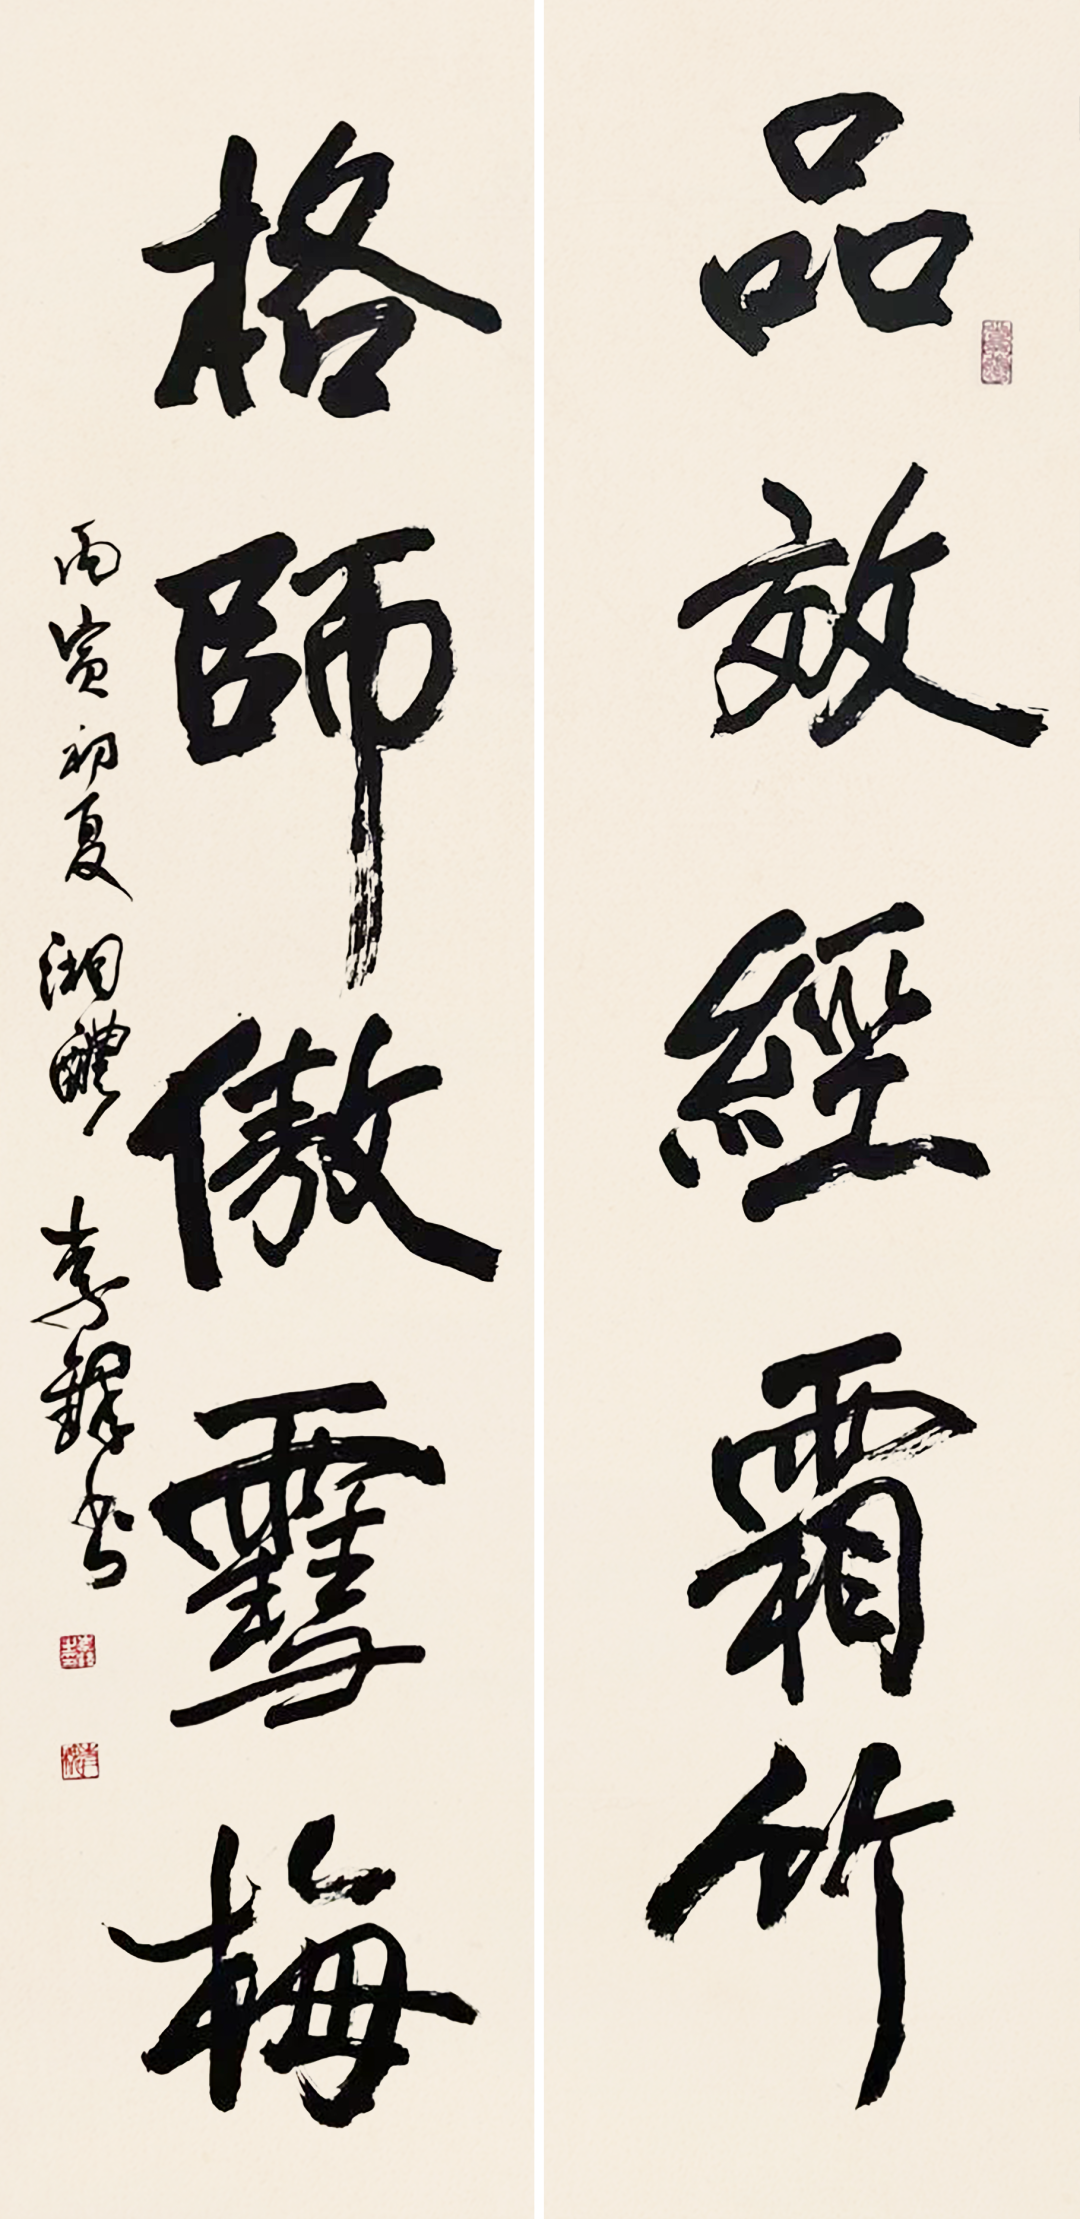 品效經霜竹
格師傲雪梅
丙寅初夏湘醴李鐸書